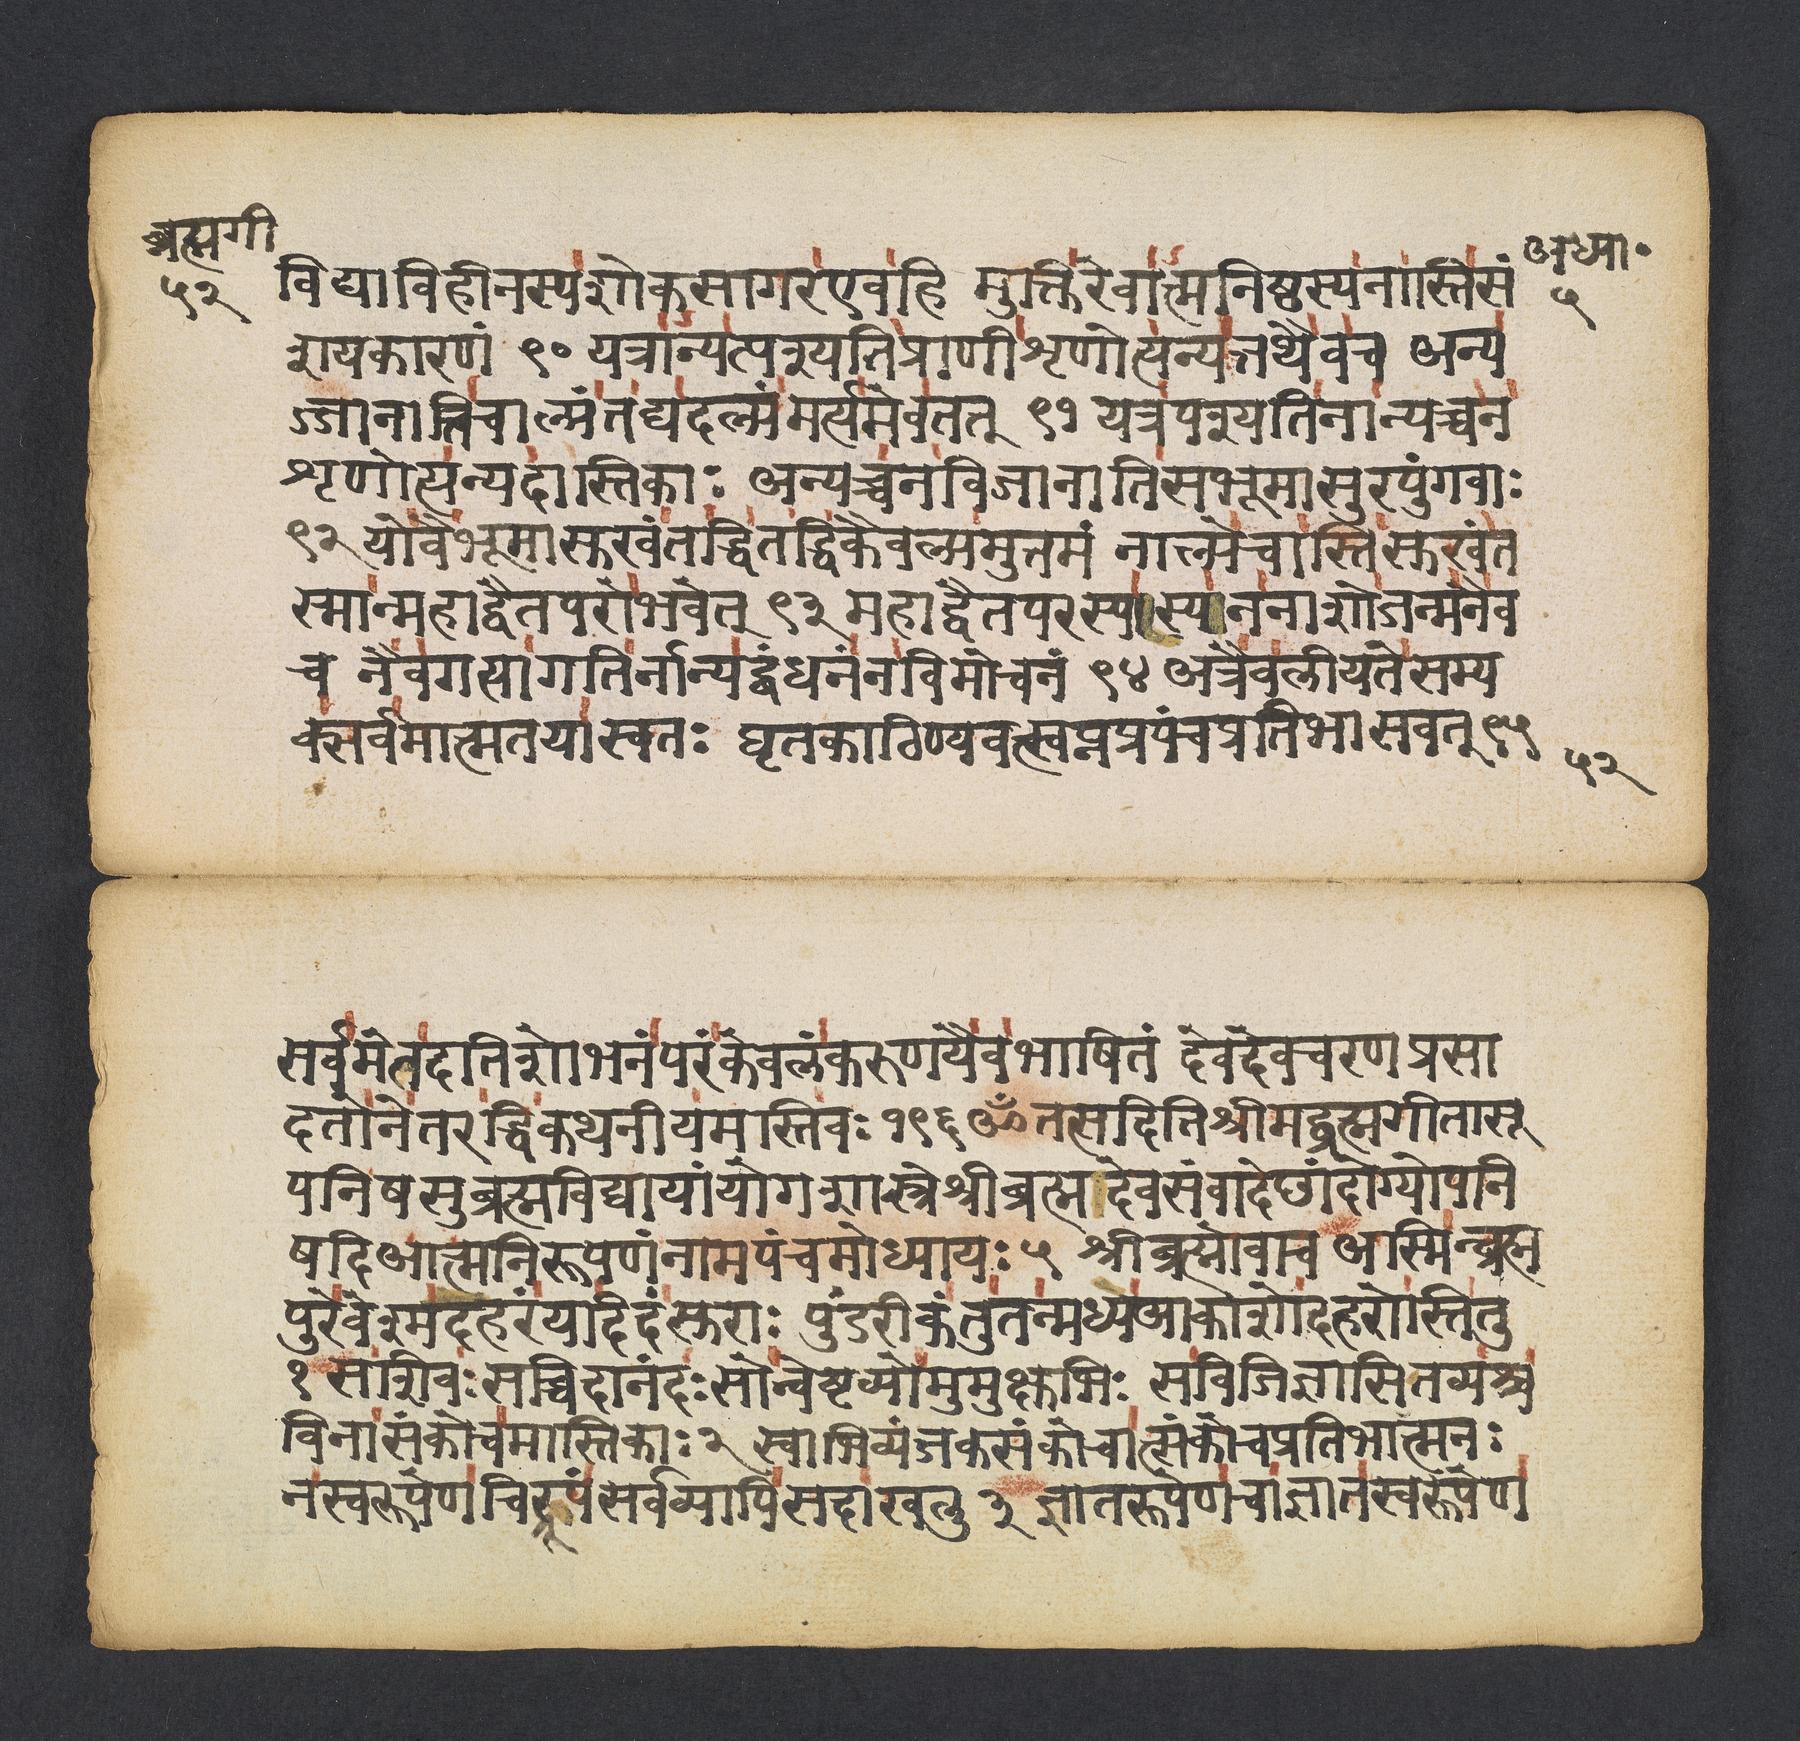 ब्रह्मगी
५२
अध्या॰
५
विद्याविहीनस्यशोकसागरएवहि मुक्तिरेवात्मनिष्ठस्यनास्तिसं
शयकारणं ९० यत्रान्यत्पश्यतिप्राणीशृणोत्यन्यत्तथैवच अन्य
ज्जानातिचाल्पंतद्यदल्पंमर्त्यमेवतत् ९१ यत्रपश्यतिनान्यच्चन
शृणोत्यन्यदास्तिकाः अन्यच्चनविजानातिसभूमासुरपुंगवाः
९२ योवैभूमासुखंतद्धितद्धिकैवल्यमुत्तमं नाल्पेचास्तिसुखंत
स्मान्महाद्वैतपरोभवेत् ९३ महाद्वैतपरस्यास्यननाशोजन्मनैव
च नैवगत्यागतिर्नान्यद्बंधनंनविमोचनं ९४ अत्रैवलीयतेसम्य
क्सर्वमात्मतयास्वतः घृतकाठिण्यवत्स्वप्नप्रपंचप्रतिभासवत् ९५
५२
सर्वमेतदतिशोभनंपरंकेवलंकरुणयैवभाषितं देवदेवचरणप्रसा
दतोनेतरद्धिकथनीयमस्तिवः १९६ ॐतत्सदितिश्रीमद्ब्रह्मगीतासू
पनिषसुब्रह्मविद्यायांयोगशास्त्रेश्रीब्रह्मादेवसंवादेछांदोग्योपनि
षदिआत्मनिरूपणंनामपंचमोध्यायः ५ श्रीब्रह्मोवाच अस्मिन्ब्रह्म
पुरेवेश्मदहरंयदिदंसुराः पुंडरीकंतुतन्मध्येआकाशोदहरोस्तितु
१ सशिवःसच्चिदानंदःसोन्वेष्टव्योमुमुक्षुभिः सविजिज्ञासितव्यश्च
विनासंकोचमास्तिकाः २ स्वाभिव्यंजकसंकोचात्संकोचप्रतिभात्मनः
नस्वरूपेणचिद्रूपंसर्वव्यापिसदाखलु ३ ज्ञातरूपेणचाज्ञातस्वरूपेण